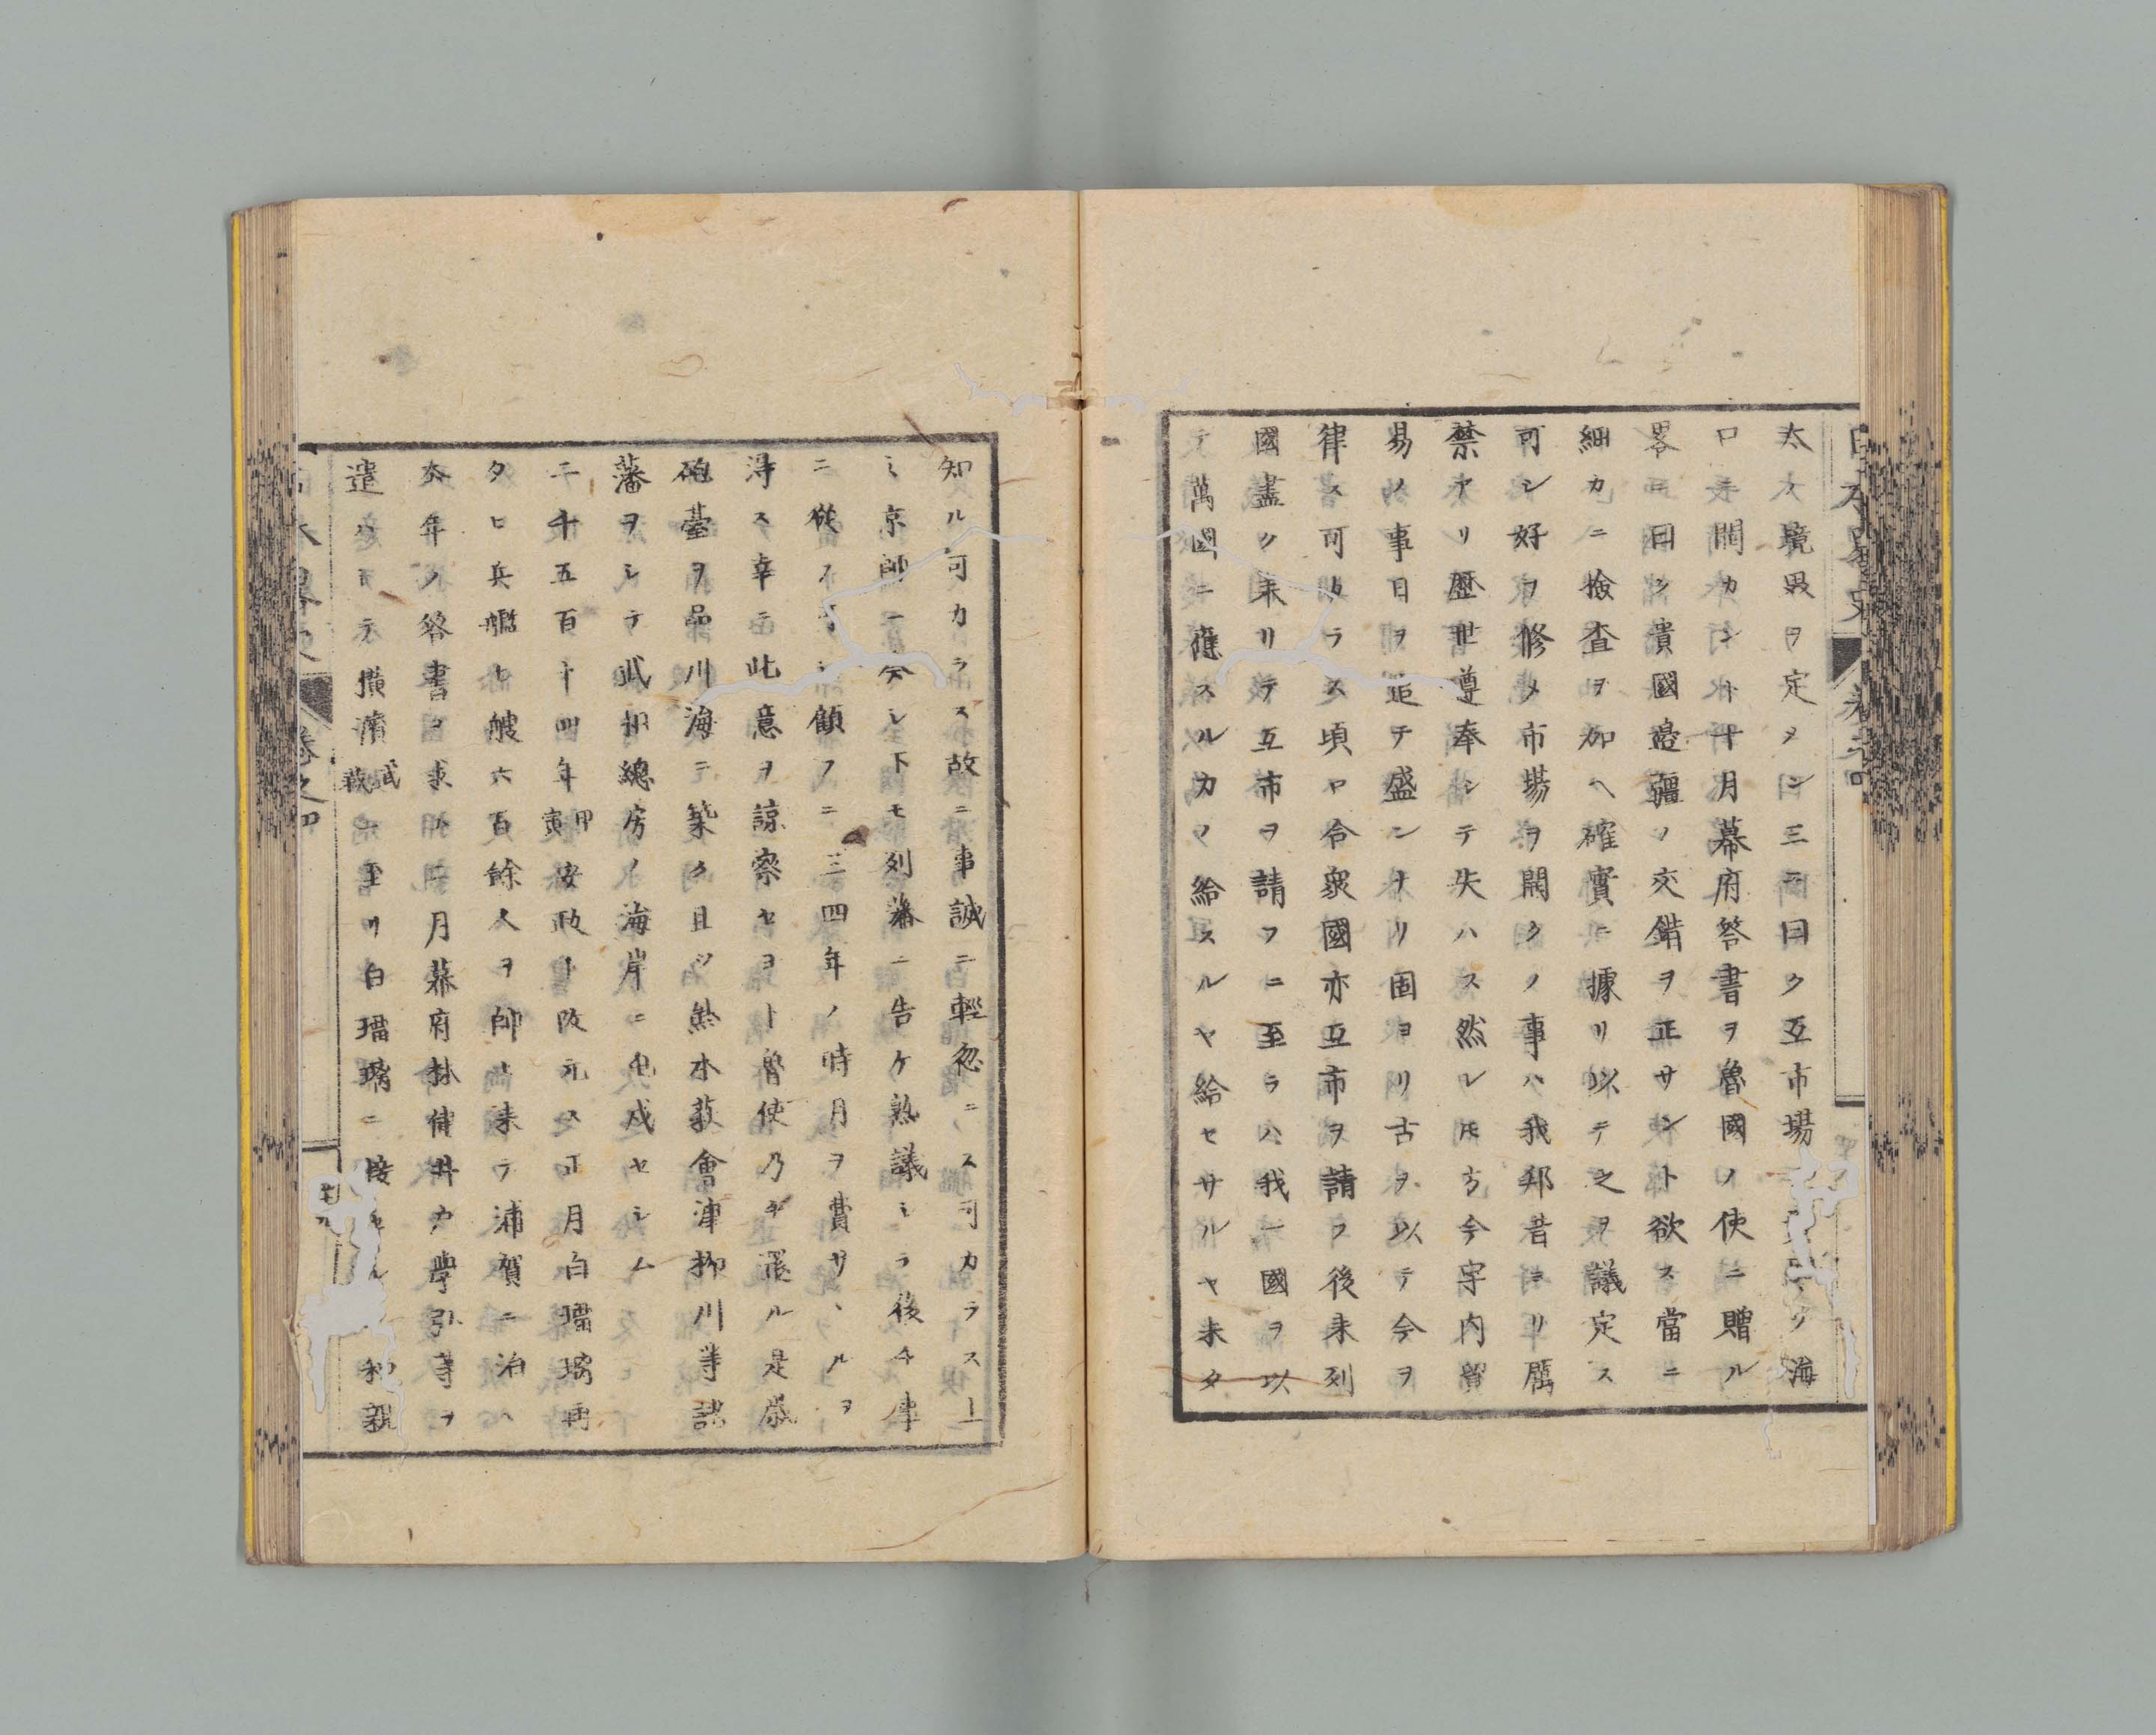 太ノ境界ヲ定メン三ニ曰ク互市場
リ海
口ヲ開カント十月幕府答書ヲ魯國ノ使ニ贈ル
畧ニ曰ク貴國邉疆ノ交錯ヲ正サント欲ス當ニ
細カニ撿査ヲ加ヘ確實ニ據リ以テ之ヲ議定ス
可シ好ヲ修メ市場ヲ開クノ事ハ我邦昔ヨリ厲
禁アリ歴世遵奉シテ失ハス然レ𪜈方今宇内貿
易ノ事日ヲ追テ盛ンナリ固ヨリ古ヲ以テ今ヲ
律ス可カラス頃ヤ合衆國亦互市ヲ請フ後来列
國盡ク来リテ互市ヲ請フニ至ラハ我一國ヲ以
テ萬國ニ應スルカノ給スルヤ給セサルヤ未タ
知ル可カラス故ニ事誠ニ輕忽ニス可カラス上
ミ京師ニ奏シ下モ列藩ニ告ケ熟議シテ後チ事
ニ從ハン顧フニ三四年ノ時月ヲ費サヽルヲ
得ス幸ニ此意ヲ諒察セヨト魯使乃チ還ル是歳
砲臺ヲ品川海ニ築ク且ツ熊本萩會津柳川等諸
藩ヲシテ武相總房ノ海岸ニ屯戍セシム
二千五百十四年甲寅安政ト改元ス正月白璢璃再
タヒ兵艦七艘六百餘人ヲ帥ヰ来テ浦賀ニ泊ヘ
去年ノ答書ヲ求ム二月幕府林偉井戸學弘等ヲ
遣ハシテ横濱武藏ニ至リ白璢璃ニ接セシ
和親
日本畧史
卷之四
日本畧史
卷之四